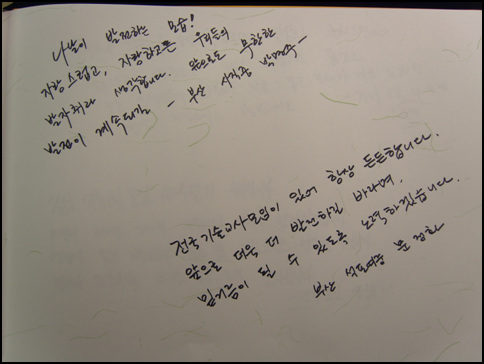 나날이 발전하는 모습!
자랑스럽고, 자랑하고픈 우리들의
발자취라 생각합니다. 앞으로도 무한한
발전이 계속되길 - 부산 사직중
전국기술교사모임이 있어 항상 든든합니다.
앞으로 더욱 더 발전하길 바라며,
밑거름이 될 수 있도록 노력하겠습니다.
부산 석포여중 문정화